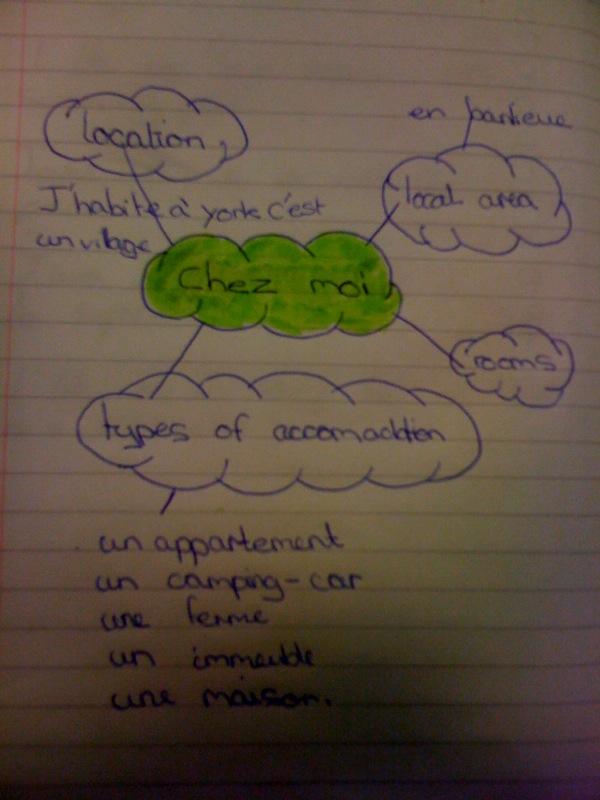 location
en banlieue
local area
J'habite à york c'est
un vilage
Chez moi
rooms
types of accomadation
un appartement
un camping-car
une ferme
un immeuble
une maison.